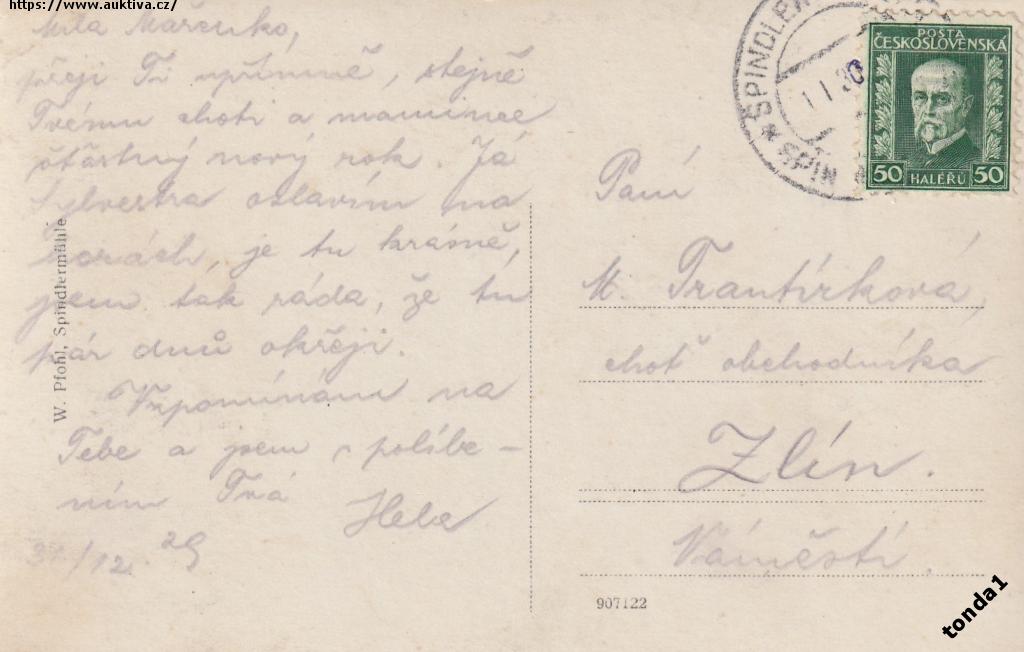 https://www.auktiva.cz/
Milá Mařenko,
přeji Ti upřímně, stejně
Tvému choti a mamince
šťastný nový rok. Já
Sylvestra oslavím na
horách, je tu krásně,
jsem tak ráda, že tu
pár dnů okřeji.
Vzpomínám na
Tebe a jsem s políbe-
ním Tvá
Hela
31/12. 29
W. Pfohl, Spindlermühle
ŠPINDLER
* SPIN
1.I.30
POSTA
ČESKOSLOVENSKÁ
50 HALÉŘŮ 50
Paní
M. Trantírková,
choť obchodníka
Zlín.
Náměstí.
907122
tonda1